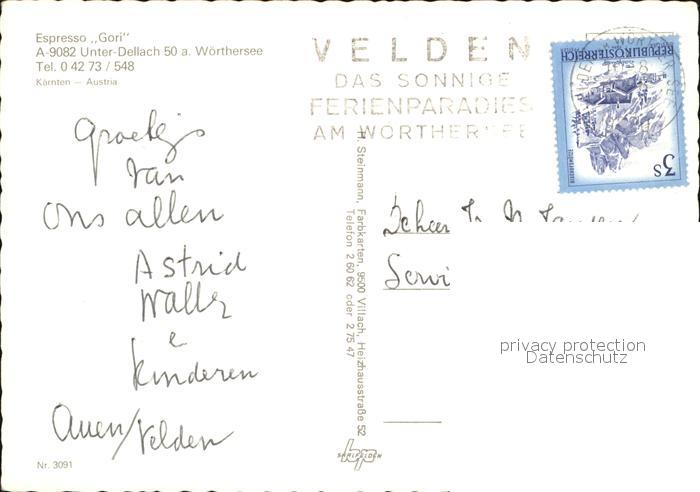 Espresso ,,Gori''
A-9082 Unter-Dellach 50 a. Wörthersee
Tel. 0 42 73 / 548
Kärnten – Austria
VELDEN
DAS SONNIGE
FERIENPARADIES
AM WÖRTHERSEE
REPUBLIK ÖSTERREICH
3 S
Groetjes
van
ons allen
Astrid
Walter
e
kinderen
Auen/Velden
H. Steinmann, Farbkarten, 9500 Villach, Heizhausstraße 52
Telefon 2 60 62 oder 2 75 47
privacy protection
Datenschutz
Nr. 3091
SAALFELDEN